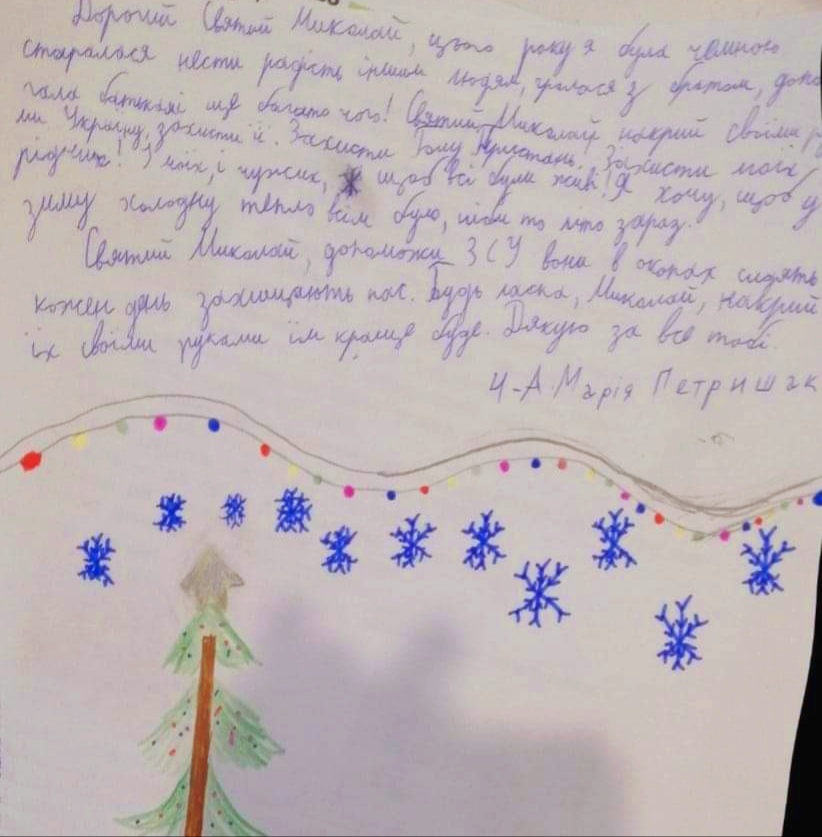 Дорогий Святий Миколай, цього року я була чемною
старалася нести радість іншим людям, гралася з братом, допо
гала батькам і ще багато чого! Святий Миколай накрий своїми ру
ми Україну, захисти її. Захисти Голу Пристань. Захисти моїх
рідних! І моїх, і чужих, щоб всі були живі! Я хочу, щоб у
зиму холодну тепло всім було, ніби то літо зараз.
Святий Миколай, допоможи ЗСУ вони в окопах сидять
кожен день захищають нас. Будь ласка, Миколай, накрий
їх своїми руками їм краще буде. Дякую за все тобі.
4-А. Марія Петришак